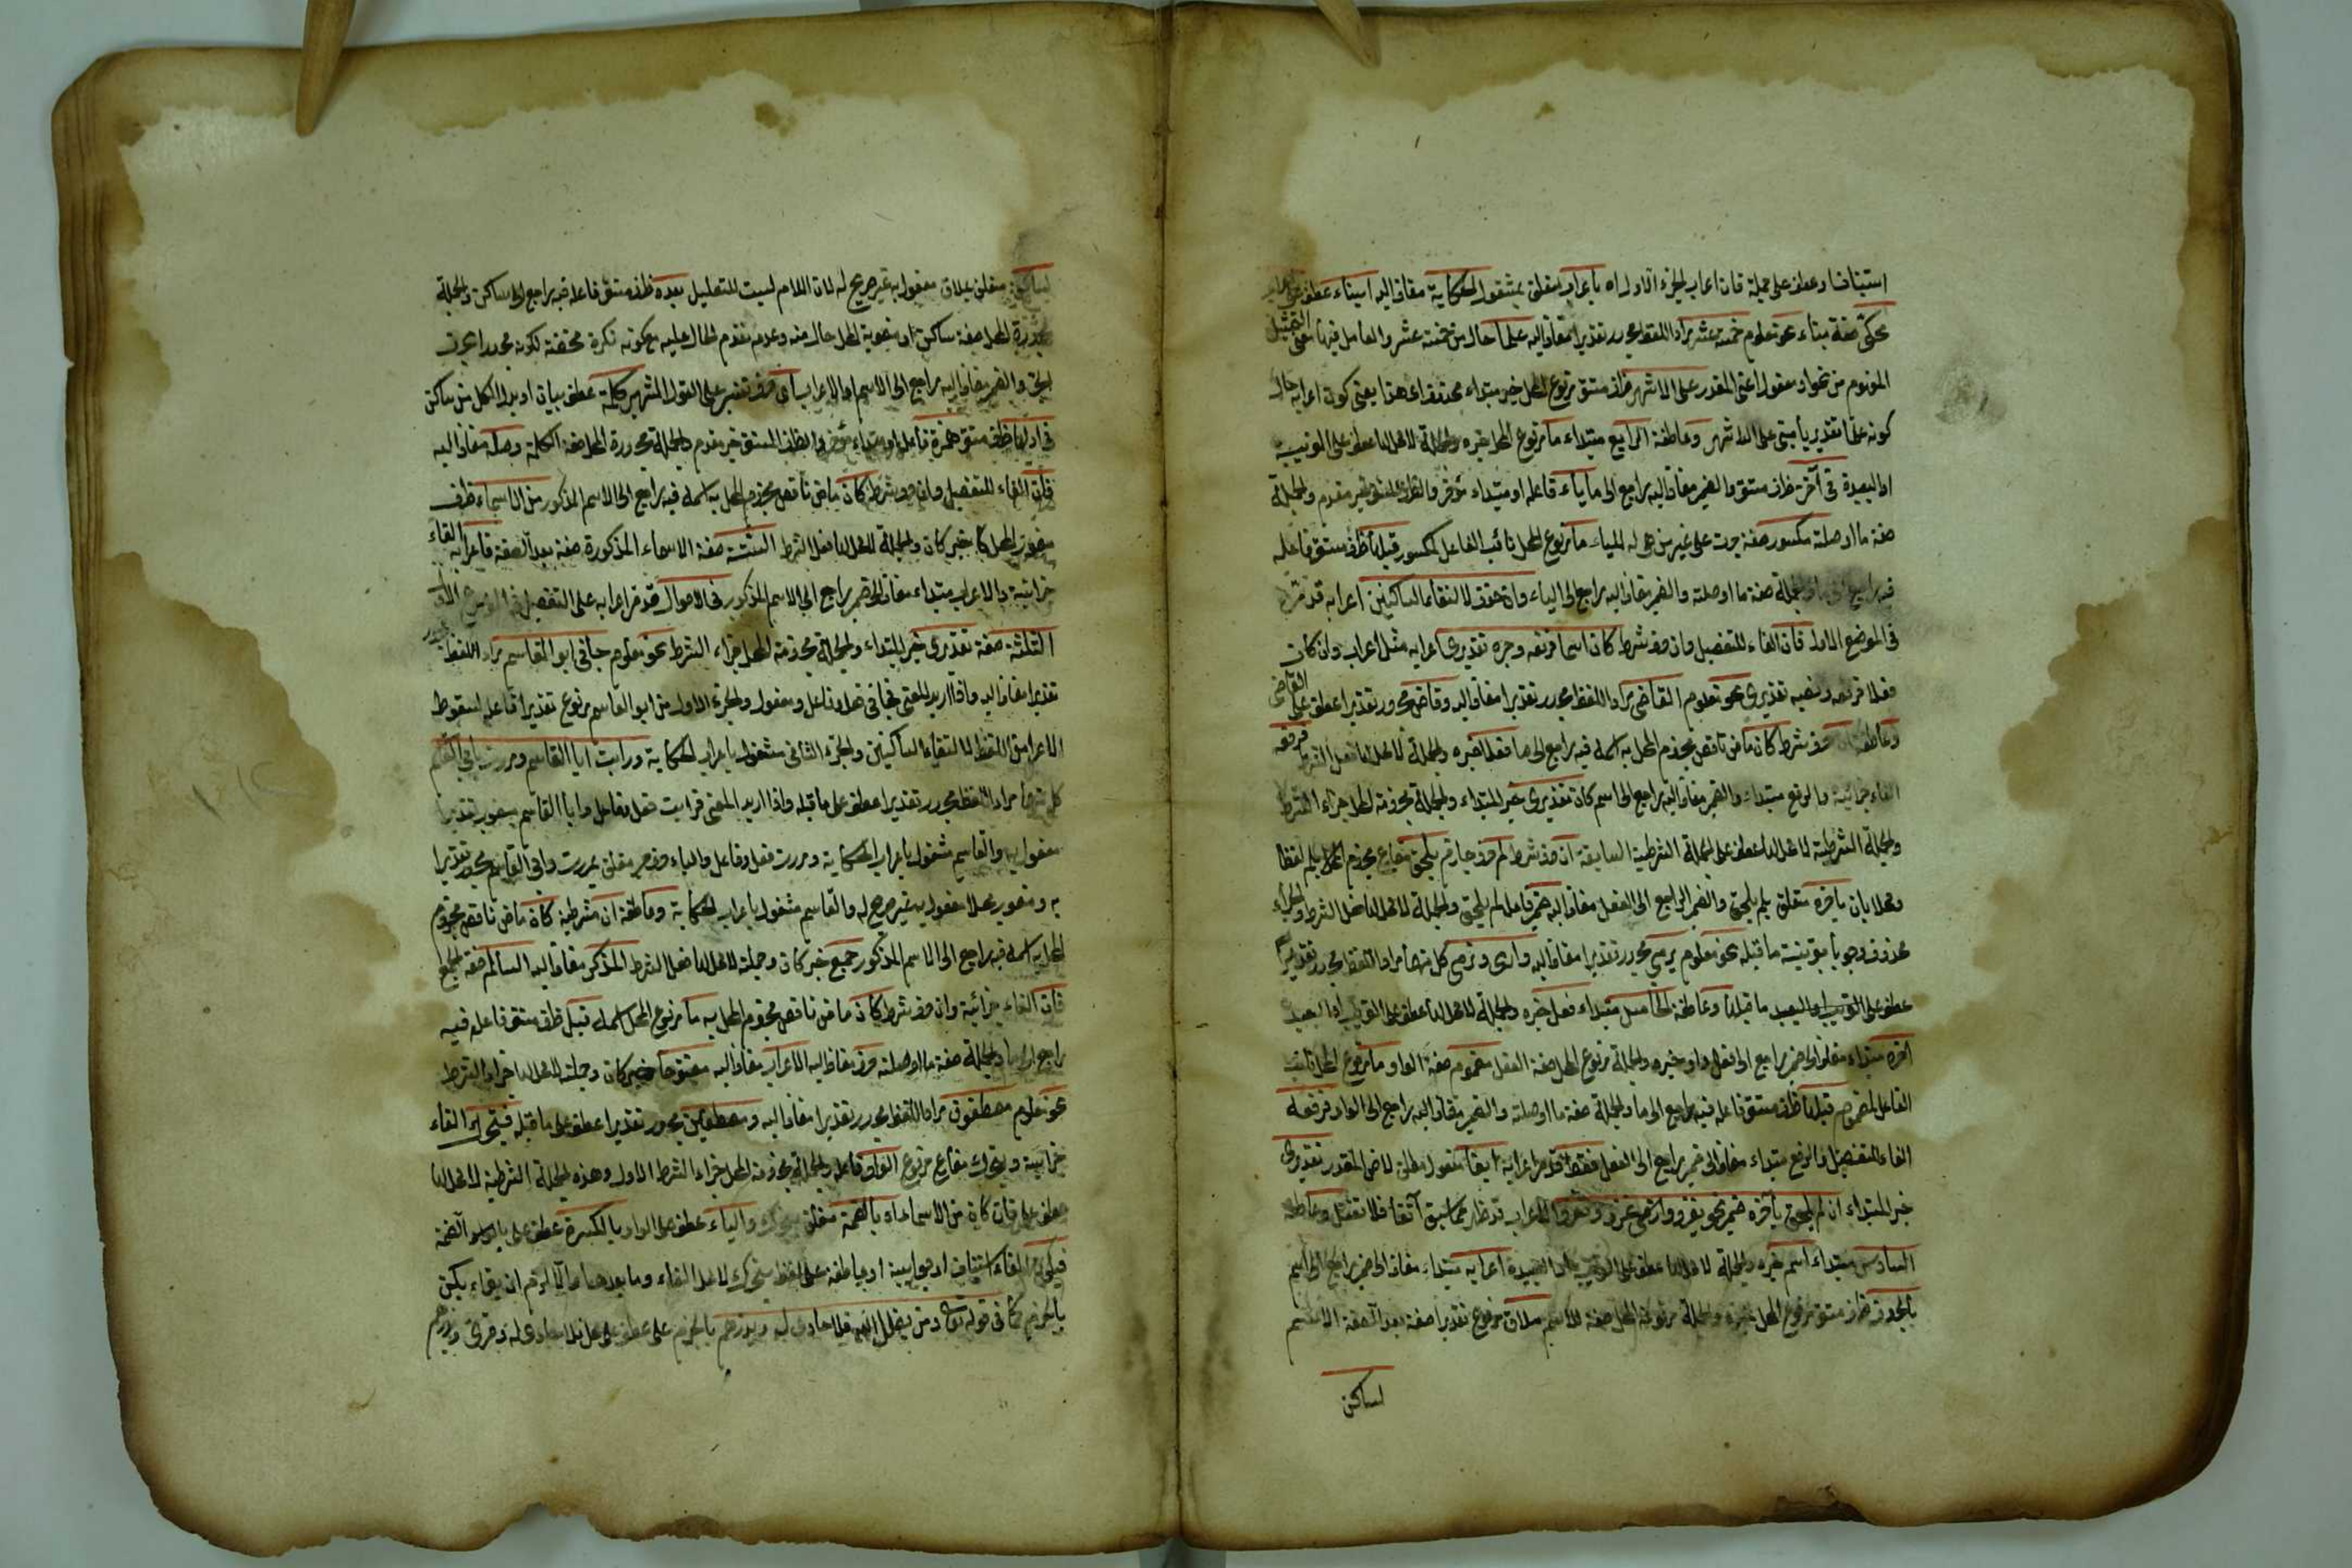 استينافا وعطف على جملة فان اعراب الجزء الاول اه باعراب متعلق بمشغول الحكاية مضاف اليه او بناء عطف على اعراب
محكى صفة بناء نحو معلوم خمسة عشر مراد اللفظ مجرور تقديرا مضاف اليه علما حال من خمسة عشر والعامل فيها معنى التمثيل
المفهوم من نحو او مفعول اعنى المقدر على الاشهر ظرف مستقر مرفوع المحل خبر مبتداء محذوف اى هذا يعنى كون اعرابه حال
كونه علما تقديريا مبنى على الاشهر وعاطفة الرابع مبتداء ما مرفوع المحل خبره والجملة لا محل لها عطف على القريبة
او البعيدة فى آخره ظرف مستقر والضمير مضاف اليه راجع الى ما ياء فاعله او مبتداء مؤخر والظرف المستقر خبر مقدم والجملة
صفة ما او صلته مكسور صفة جرت على غير من هى له للياء ما مرفوع المحل نائب الفاعل لمكسور قبلها ظرف مستقر فاعله
فيه راجع الى ما والجملة صفة ما او صلته والضمير مضاف اليه راجع الى الياء وان حذف لالتقاء الساكنين اعرابه قد مر
فى الموضع الاول فان الفاء للتفصيل وان حرف شرط كان اسما فرفعه وجره تقديرى اعرابه مثل اعراب وان كان
فعلا فرفعه ونصبه تقديرى نحو معلوم القاضى مراد اللفظ مجرور تقديرا مضاف اليه وقاض مجرور تقديرا عطف على القاضى
وعاطفة ان حرف شرط كان ماض ناقص مجزوم المحل به اسمه فيه راجع الى ما فعلا خبره والجملة لا محل لها فعل الشرط فرفعه
الفاء جزائية والرفع مبتداء والضمير مضاف اليه راجع الى اسم كان تقديرى خبر المبتداء والجملة مجزومة المحل جزاء الشرط
والجملة الشرطية لا محل لها عطف على الجملة الشرطية السابقة ان حرف شرط لم حرف جازم يلحق مضارع مجزوم بلم لفظا
ومحلا بان بآخره متعلق بلم يلحق والضمير الراجع الى الفعل مضاف اليه ضمير فاعل لم يلحق والجملة لا محل لها فعل الشرط والجزاء
محذوف وجوبا بقرينة ما قبله نحو معلوم يرمى مجرور تقديرا مضاف اليه وارى ونرمى كل منها مراد اللفظ مجرور تقديرا
عطف على القريب او البعيد ما قبلها وعاطفة الخامس مبتداء فعل خبره والجملة لا محل لها عطف على القريب او البعيد
آخره مبتداء مضاف الى ضمير راجع الى فعل واو خبره والجملة مرفوع المحل صفة الفعل مضموم صفة الواو ما مرفوع المحل نائب
الفاعل لمضموم قبلها ظرف مستقر فاعله فيه راجع الى ما والجملة صفة ما او صلته والضمير مضاف اليه راجع الى الواو فرفعه
الفاء للتفصيل والرفع مبتداء مضاف الى ضمير راجع الى الفعل فقط قد مر اعرابه ايضا مفعول مطلق لاض المقدر تقديرى
خبر المبتداء ان لم يلحق بآخره ضمير نحو يغزو واغزو ونغزو الاعراب قد ظهر مما سبق آنفا فلا تغفل وعاطفة
السادس مبتداء اسم خبره والجملة لا محل لها عطف على القريب او البعيدة اعرابه مبتداء مضاف الى ضمير راجع الى اسم
بالحروف ظرف مستقر مرفوع المحل خبره والجملة مرفوعة المحل صفة للاسم ملاق مرفوع تقديرا صفة بعد الصفة الاسم
لساكن
لساكن متعلق بملاق مفعول به غير صريح له لان اللام ليست للتعليل بعده ظرف مستقر فاعله فيه راجع الى ساكن والجملة
مجرورة المحل صفة ساكن او منصوبة المحل حال منه وعدم تقدم الحال عليه مع كونه نكرة محضة لكونه مجرورا بحرف
الجر والضمير مضاف اليه راجع الى الاسم او الاعراب اى حرف تفسير على القول المشهور كلمة عطف بيان او بدل الكل من ساكن
فى اولها ظرف مستقر همزة فاعله او مبتداء مؤخر والظرف المستقر خبر مقدم والجملة مجرورة المحل صفة الكلمة وصل مضاف اليه
فان الفاء للتفصيل وان حرف شرط كان ماض ناقص مجزوم المحل به اسمه فيه راجع الى الاسم المذكور من الاسماء ظرف
منصوب المحل كا خبر كان والجملة لا محل لها فعل الشرط الستة صفة الاسماء المذكورة صفة بعد الصفة فاعرابه الفاء
جزائية والاعراب مبتداء مضاف الى ضمير راجع الى الاسم المذكور فى الاحوال قد مر اعرابه على التفصيل فى الموضع الاول
الثلثة صفة تقديرى خبر المبتداء والجملة مجزومة المحل جزاء الشرط نحو معلوم جاءنى ابو القاسم مراد اللفظ مجرور
تقديرا مضاف اليه واذا اريد المعنى فجاءنى فعل وفاعل ومفعول والجزء الاول من ابو القاسم مرفوع تقديرا فاعله لسقوط
الاعراب من اللفظ لالتقاء الساكنين والجزء الثانى مشغول باعراب الحكاية ورايت ابا القاسم ومررت بابى القاسم
كل منهما مراد اللفظ مجرور تقديرا عطف على ما قبله واذا اريد المعنى فرايت فعل وفاعل وابا القاسم منصوب تقديرا
مفعول به والقاسم مشغول باعراب الحكاية ومررت فعل وفاعل والباء حرف جر متعلق بمررت وابى القاسم مجرور تقديرا
به ومنصوب محلا مفعول به غير صريح له والقاسم مشغول باعراب الحكاية وعاطفة ان شرطية كان ماض ناقص مجزوم
المحل به اسمه فيه راجع الى الاسم المذكور جمع خبر كان وجملته لا محل لها فعل الشرط المذكر مضاف اليه السالم صفة الجمع
فان الفاء جزائية وان حرف شرط كان ماض ناقص مجزوم المحل به ما مرفوع المحل اسمه قبل ظرف مستقر فاعله فيه
راجع الى ما والجملة صفة ما او صلته حرف مضاف اليه الاعراب مضاف اليه مفتوحا خبر كان وجملته لا محل لها جزاء الشرط
نحو معلوم مصطفون مراد اللفظ مجرور تقديرا مضاف اليه ومصطفين مجرور تقديرا عطف على ما قبله فيحرك الفاء
جزائية ويحرك مضارع مرفوع الواو فاعله والجملة مجزومة المحل جزاء الشرط الاول وهذه الجملة الشرطية لا محل لها
عطف على فان كان من الاسماء اه بالضمة متعلق بيحرك والياء عطف على الواو بالكسرة عطف على بالضمة
فيكون الفاء استيناف او جوابية او عاطفة على لفظ يحرك لا محل الفاء وما بعدها والا لزم ان يقراء يكن
بالجزم كما فى قوله تعالى ومن يضلل الله فلا هادى له ويذرهم بالجزم على عطف على محل فلا هادى له وقرئ ويذرهم